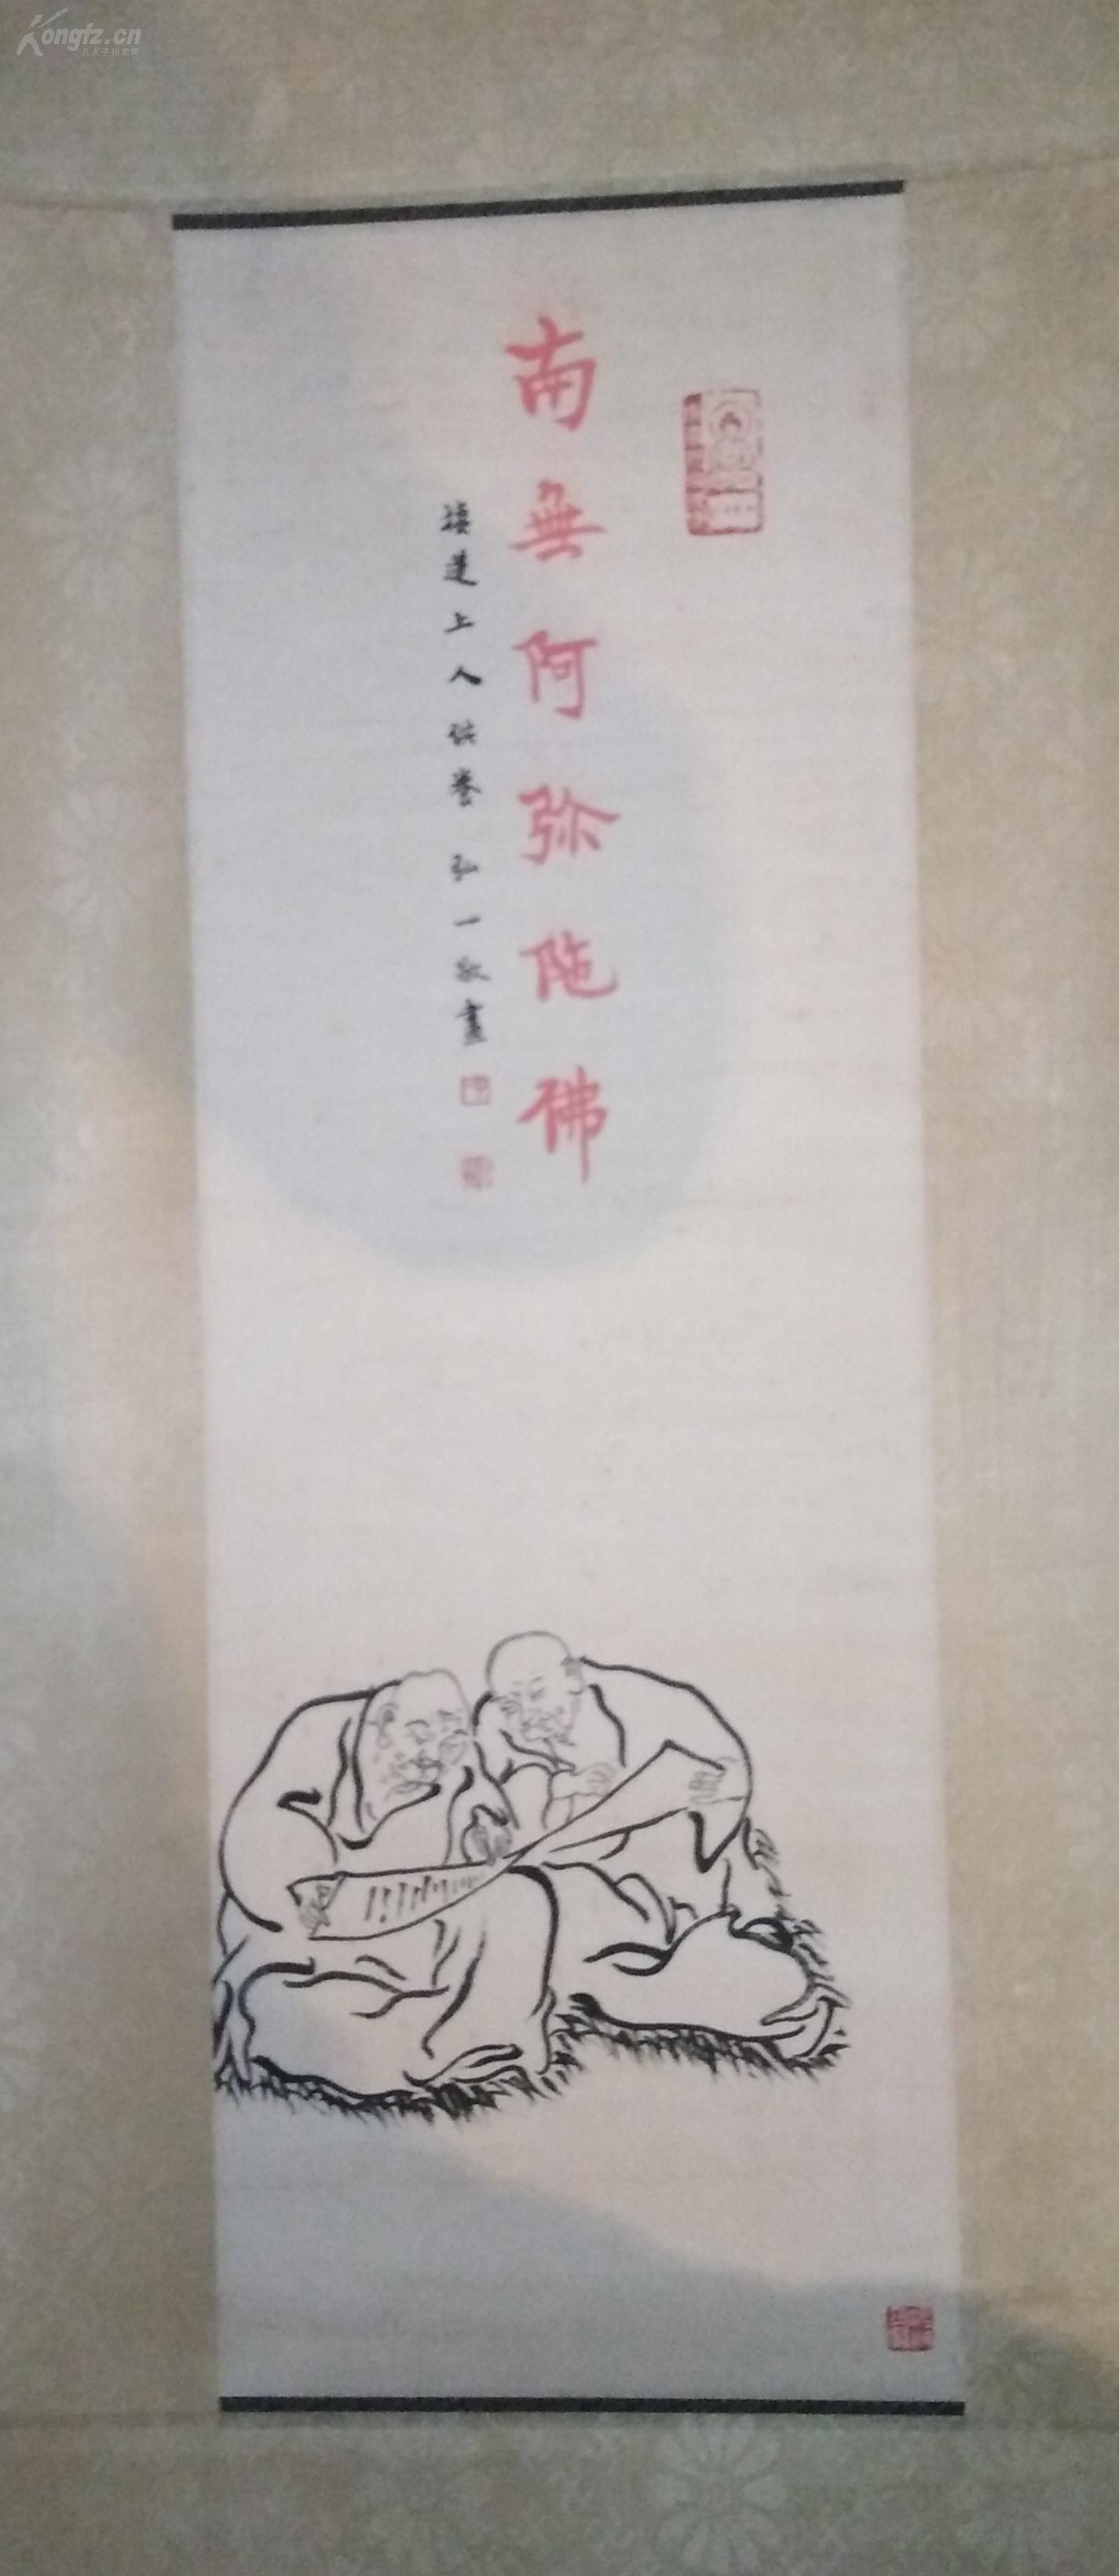 Kongfz.cn
孔夫子拍卖网
南無阿弥陁佛
蓮上人供養 弘一敬畫